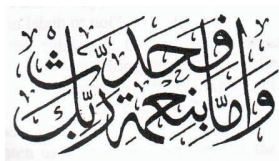 وَأَمَّا بِنِعْمَةِ رَبِّكَ
فَحَدِّثْ